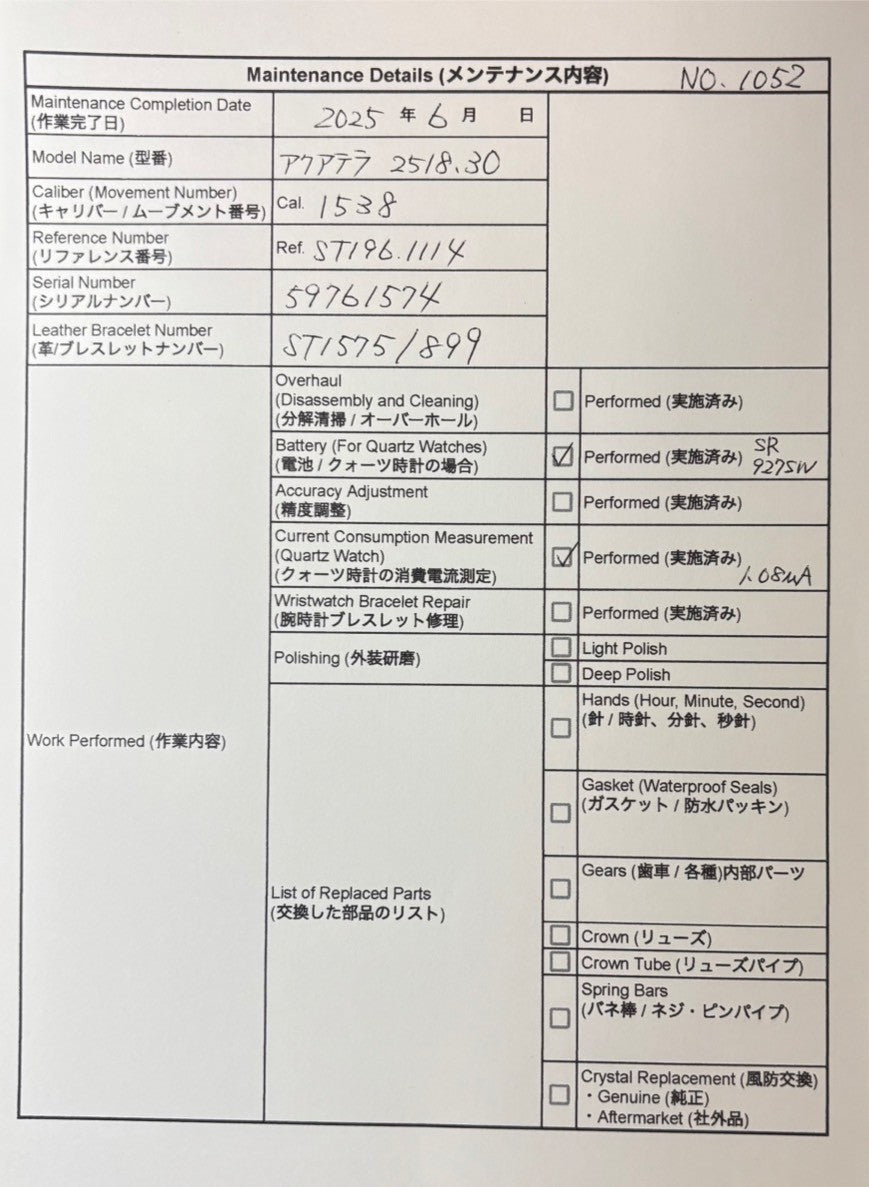 Maintenance Details (メンテナンス内容) NO. 1052
Maintenance Completion Date
(作業完了日)
2025 年 6 月 日
Model Name (型番)
アクアテラ 2518.30
Caliber (Movement Number)
(キャリバー / ムーブメント番号)
Cal. 1538
Reference Number
(リファレンス番号)
Ref. ST196.1114
Serial Number
(シリアルナンバー)
59761574
Leather Bracelet Number
(革/ブレスレットナンバー)
ST1575/899
Work Performed (作業内容)
Overhaul
(Disassembly and Cleaning)
(分解清掃 / オーバーホール)
Performed (実施済み)
Battery (For Quartz Watches)
(電池 / クォーツ時計の場合)
Performed (実施済み)
SR
927SW
Accuracy Adjustment
(精度調整)
Performed (実施済み)
Current Consumption Measurement
(Quartz Watch)
(クォーツ時計の消費電流測定)
Performed (実施済み)
1.08μA
Wristwatch Bracelet Repair
(腕時計ブレスレット修理)
Performed (実施済み)
Polishing (外装研磨)
Light Polish
Deep Polish
List of Replaced Parts
(交換した部品のリスト)
Hands (Hour, Minute, Second)
(針 / 時針、分針、秒針)
Gasket (Waterproof Seals)
(ガスケット / 防水パッキン)
Gears (歯車 / 各種)内部パーツ
Crown (リューズ)
Crown Tube (リューズパイプ)
Spring Bars
(バネ棒 / ネジ・ピンパイプ)
Crystal Replacement (風防交換)
・Genuine (純正)
・Aftermarket (社外品)